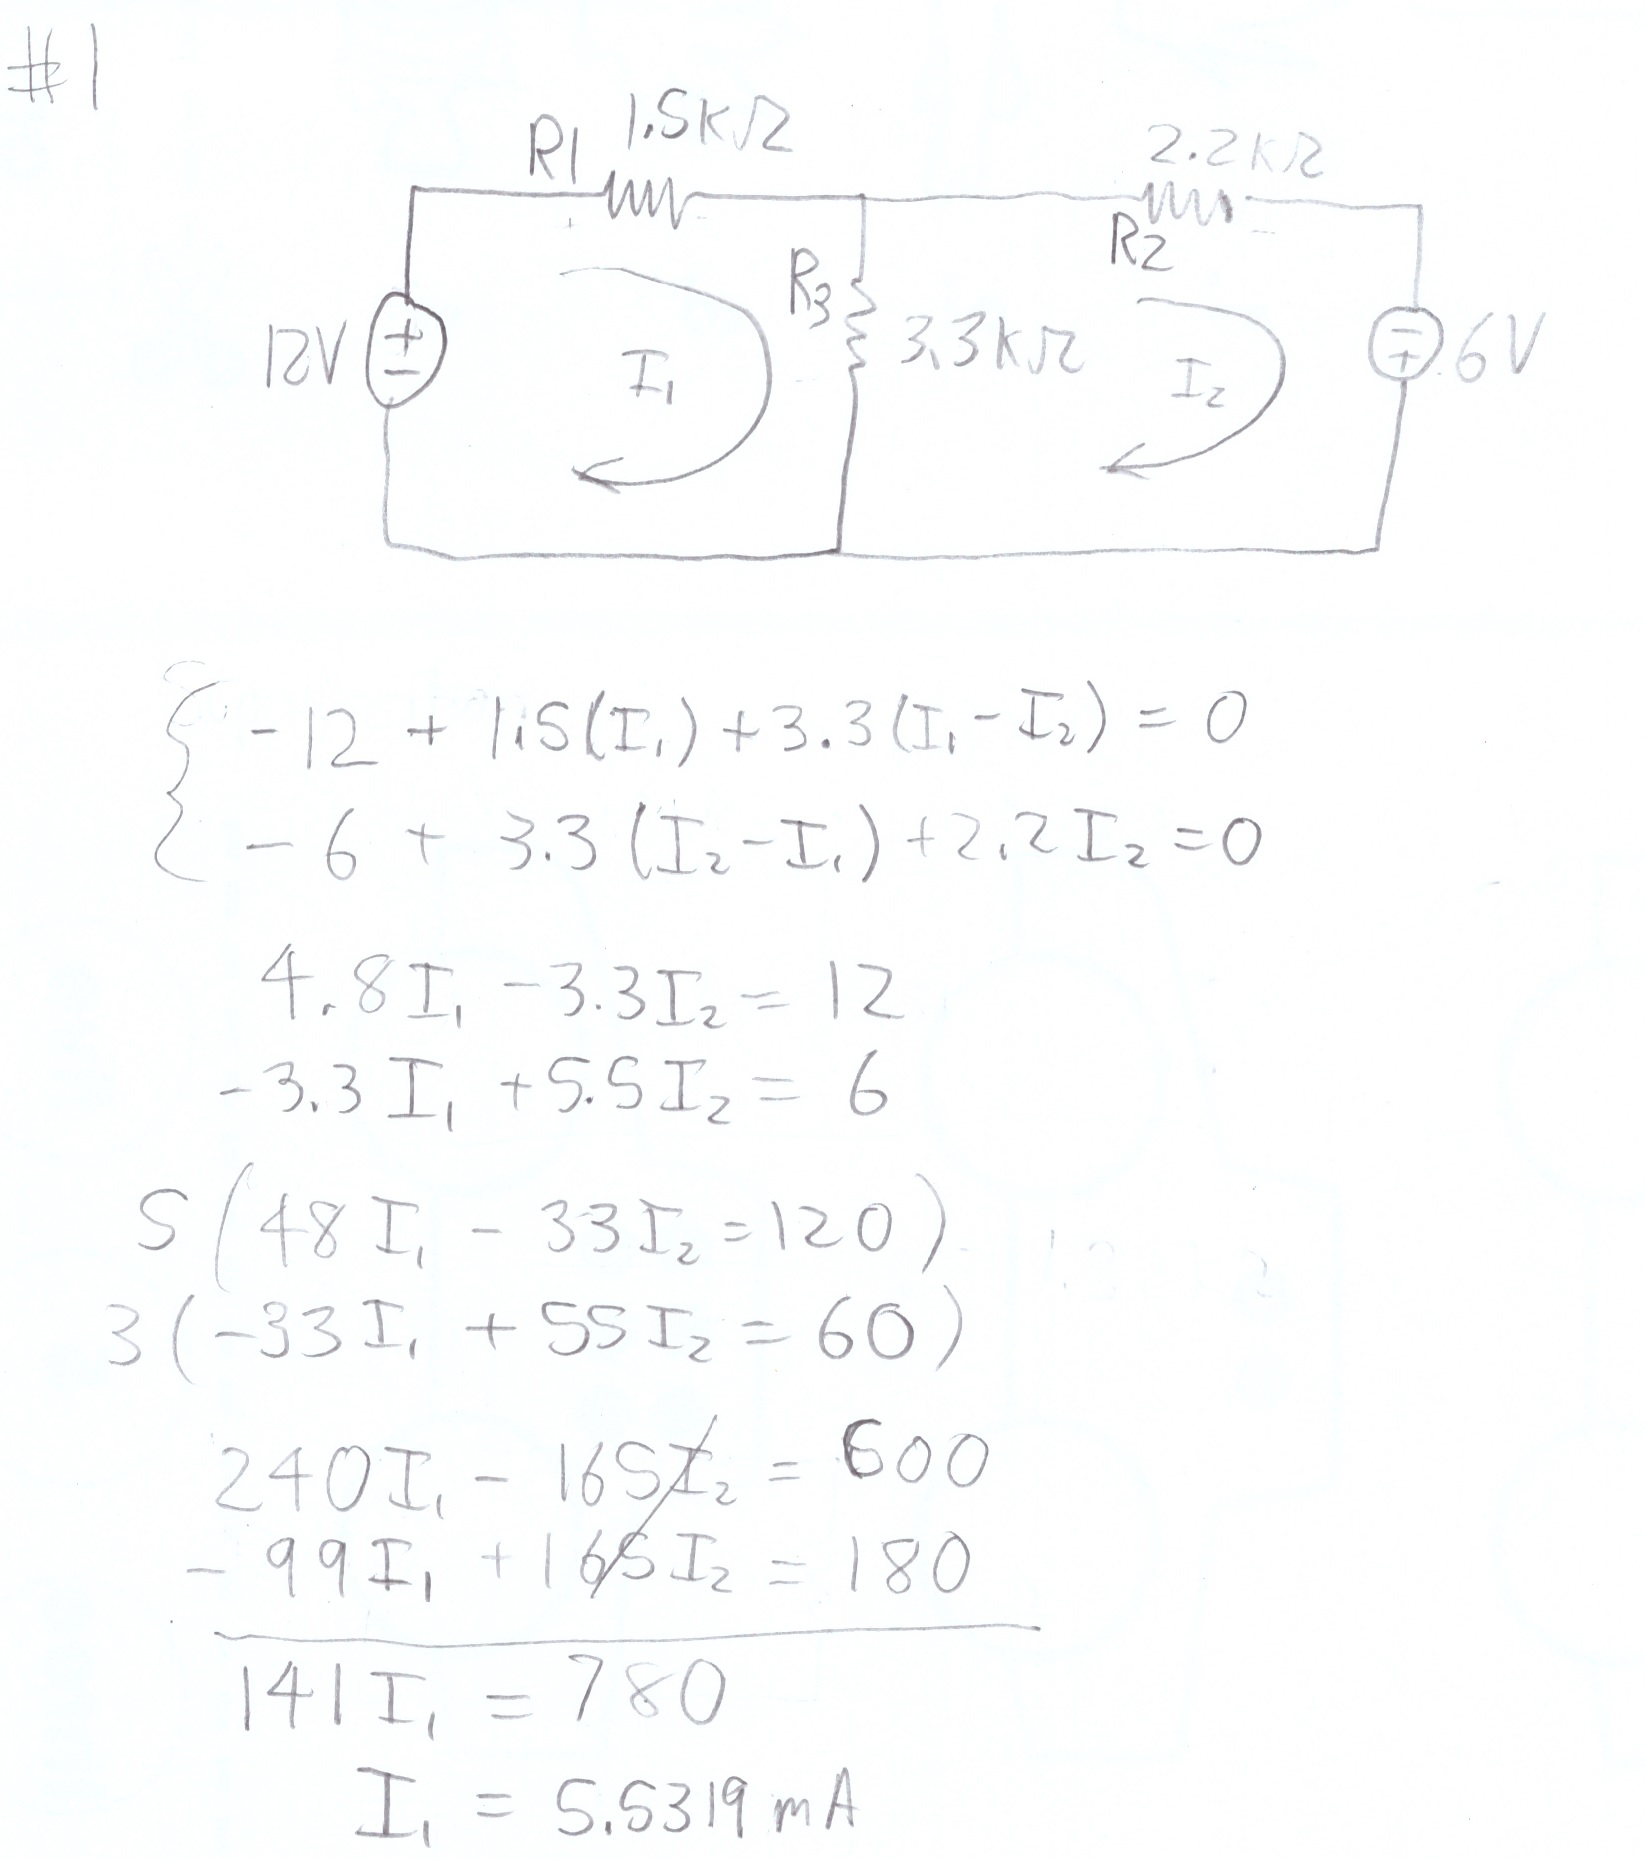 #1
R1 1.5kΩ
2.2kΩ
R2
R3
3.3kΩ
12V
+
-
I₁
I₂
-
+
6V
-12 + 1.5(I₁) + 3.3(I₁ - I₂) = 0
-6 + 3.3(I₂ - I₁) + 2.2I₂ = 0
4.8I₁ - 3.3I₂ = 12
-3.3I₁ + 5.5I₂ = 6
5(48I₁ - 33I₂ = 120)
3(-33I₁ + 55I₂ = 60)
240I₁ - 165I₂ = 600
-99I₁ + 165I₂ = 180
141I₁ = 780
I₁ = 5.5319mA